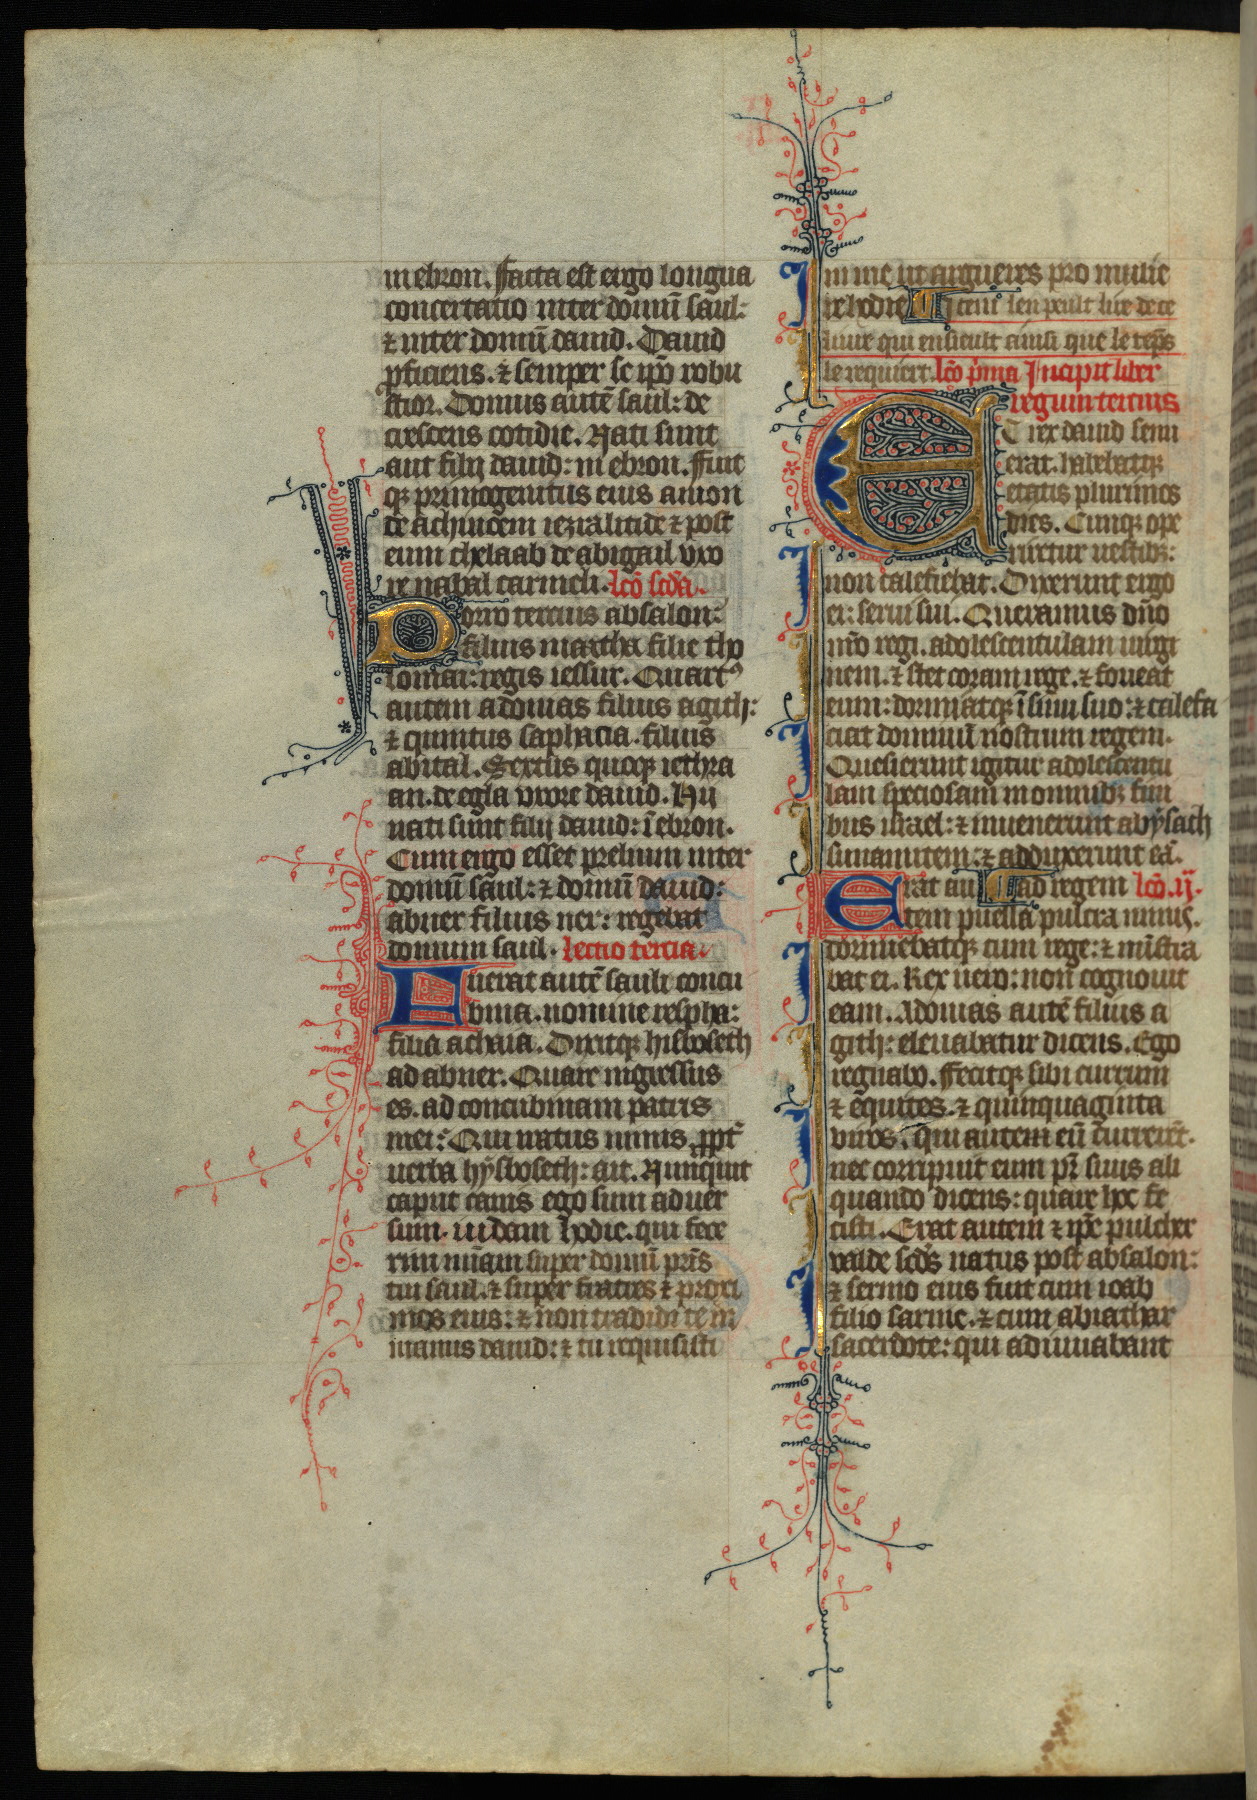 in ebron. Facta est ergo longua
concertatio inter domū saul:
⁊ inter domū dauid. Dauid
ꝓficiens. ⁊ semper se ip̄o robu
stior. Domus autē saul: de
crescens cotidie. Nati sunt
aut filii dauid: in ebron. Fuit
qꝫ primogenitus eius amon
de achinoem iezralitide ⁊ post
eum chelaab de abigail vxo
re nabal carmeli. lcō scd̄a.
Porro tercius absalon:
filius maacha filie tho
lomai: regis iessur. Quartꝰ
autem adonias filius agith:
⁊ quintus saphacia. filius
abital. Sextus quoqꝫ iethra
an. de egla vxore dauid. Hii
nati sunt filii dauid: ī ebron.
Cum ergo esset prelium inter
domū saul: ⁊ domū dauid:
abner filius ner: regebat
domum saul. Lectio tercia.
Fuerat autē sauli concu
bina. nomine respha:
filia achaia. Dixitqꝫ hisboseth
ad abner. Quare ingressus
es. ad concubinam patris
mei: Qui iratus nimis ꝓpt̄
uerba hysboseth: ait. Nunquit
caput canis ego sum aduer
sum. iudam hodie. qui fece
rim miām super domū pr̄is
tui saul. ⁊ super fratres ⁊ proxi
mos eius: ⁊ non tradidi te in
manus dauid: ⁊ tu requisisti
in me ut argueres pro mulie
re hodie Icent len peult lire de ce
liure qui ensieult ainsi que le temps
le requiert. lcō p̄ma Incipit liber
regum tercius
Et rex dauid senu
erat. habebatqꝫ
etatis plurimos
dies. Cunqꝫ ope
riretur uestibꝫ:
non calefiebat. Dixerunt ergo
ei: serui sui. Queramus dn̄o
nr̄o regi. adolescentulam uirgi
nem. ⁊ stet coram rege. ⁊ foueat
eum: dormiatqꝫ ī sinu suo: ⁊ calefa
ciat dominū nostrum regem.
Quesierunt igitur adolescentu
lam speciosam in omnibꝫ fini
bus israel: ⁊ inuenerunt abysach
sunamitem: ⁊ adduxerunt eā.
Erat au ad regem lcō. ij.
tem puella pulcra nimis.
dormiebatqꝫ cum rege: ⁊ mīstra
bat ei. Rex uero: non cognouit
eam. Adonias autē filius a
gith: eleuabatur dicens. Ego
regnabo. Fecitqꝫ sibi currum
⁊ equites. ⁊ quinquaginta
viros. qui autem eū currerēt.
nec corripuit eum pr̄ suus ali
quando dicens: quare hoc fe
cisti. Erat autem ⁊ ip̄e pulcher
valde scd̄s natus post absalon:
⁊ sermo eius fuit cum ioab
filio saruie. ⁊ cum abiathar
sacerdote: qui adiuuabant